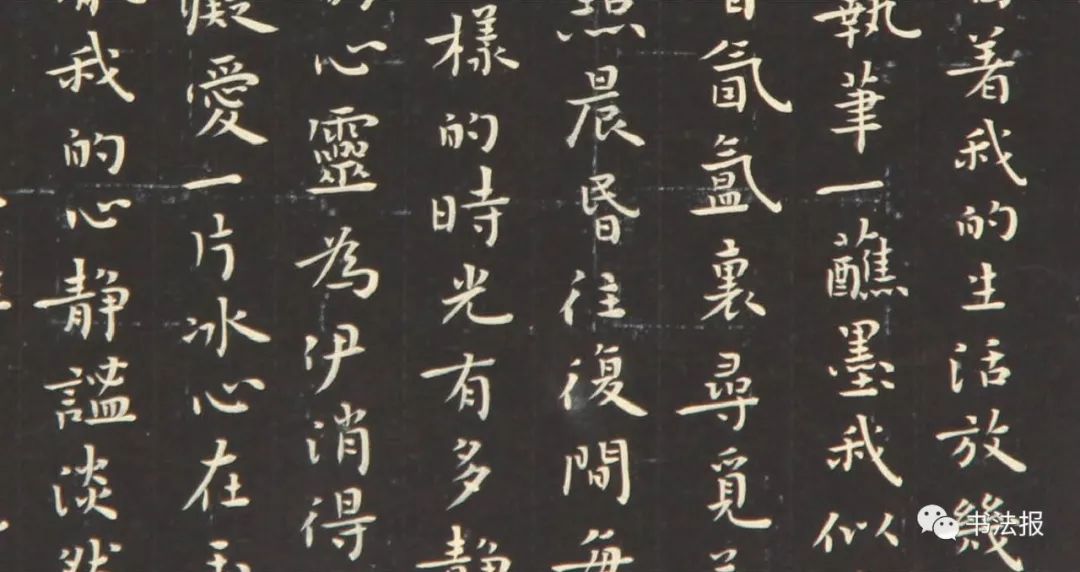 着我的生活放幾
執筆一蘸墨我似
氤氳裏尋覓
照晨昏往復間每
樣的時光有多靜
心靈為伊消得
癡愛一片冰心在玉
我的心靜謐淡然
书法报